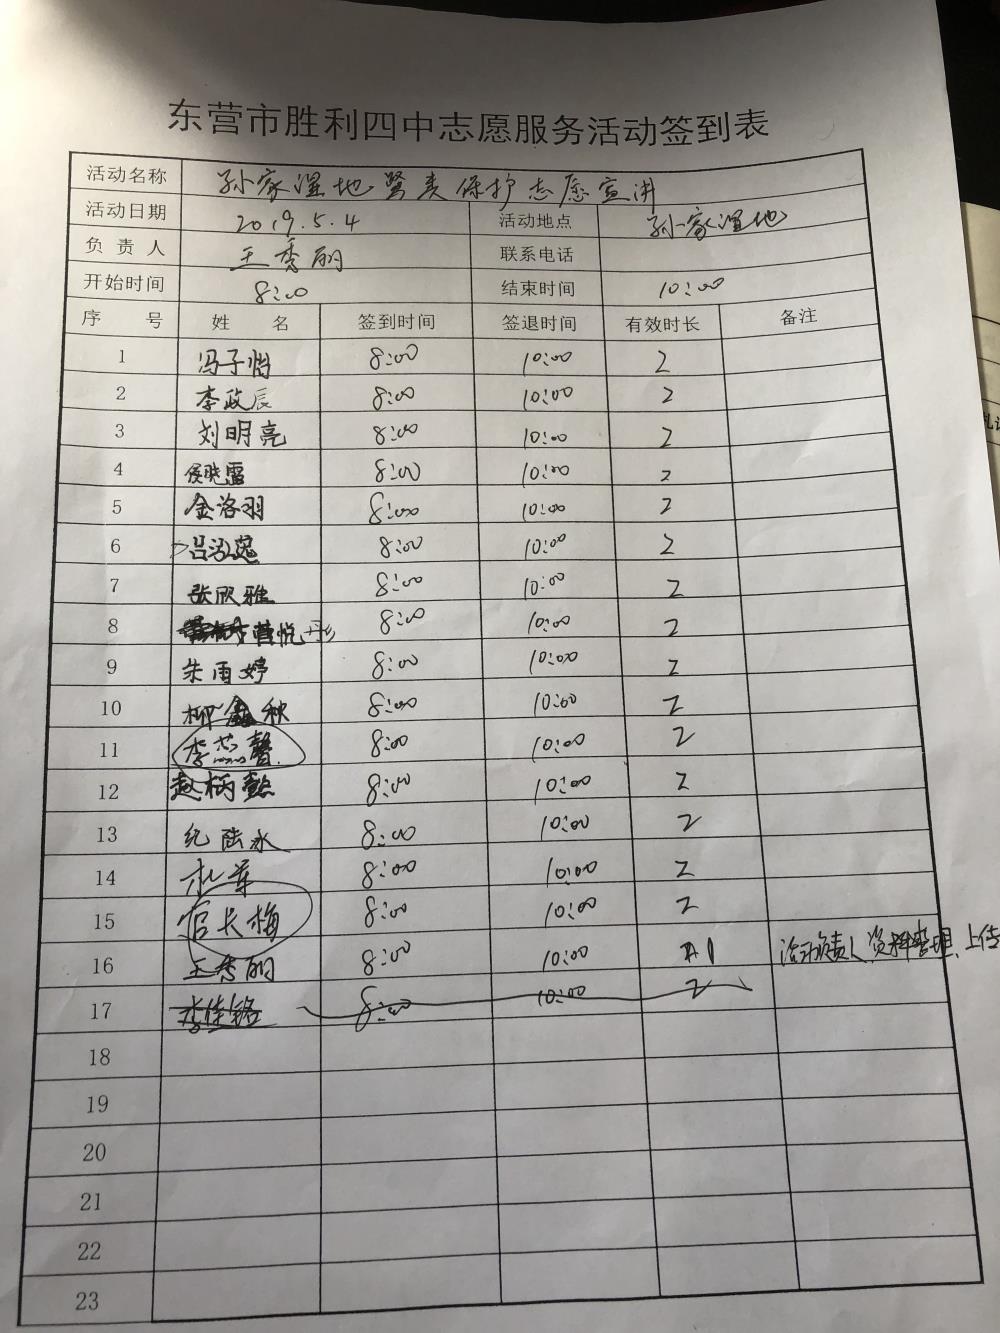 东营市胜利四中志愿服务活动签到表
活动名称 孙家湿地 保护志愿宣讲
活动日期 2019.5.4 活动地点 孙家湿地
负责人 王秀丽 联系电话
开始时间 8:00 结束时间 10:00
序号 姓名 签到时间 签退时间 有效时长 备注
1 冯子怡 8:00 10:00 2
2 李政辰 8:00 10:00 2
3 刘明亮 8:00 10:00 2
4 侯晓露 8:00 10:00 2
5 金洛羽 8:00 10:00 2
6 吕泓 8:00 10:00 2
7 张欣雅 8:00 10:00 2
8 曹悦彤 8:00 10:00 2
9 朱雨婷 8:00 10:00 2
10 柳鑫秋 8:00 10:00 2
11 李芯馨 8:00 10:00 2
12 赵柄懿 8:00 10:00 2
13 纪陆冰 8:00 10:00 2
14 8:00 10:00 2
15 官长梅 8:00 10:00 2
16 王秀丽 8:00 10:00 活动负责人,资料整理、上传
17 李佳铭 8:00 10:00 2
18
19
20
21
22
23